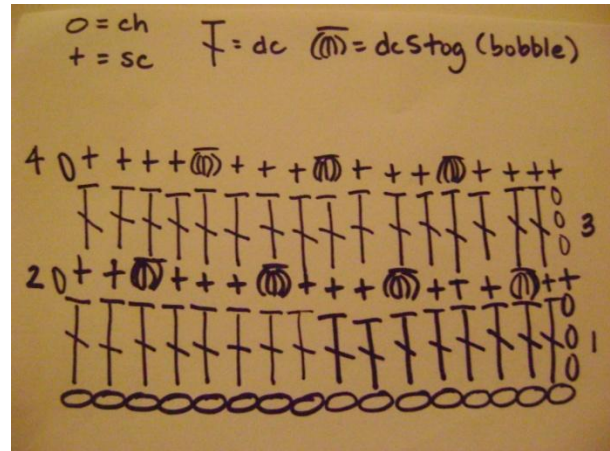 o = ch
+ = sc
= dc
= dc5tog (bobble)
4
3
2
1